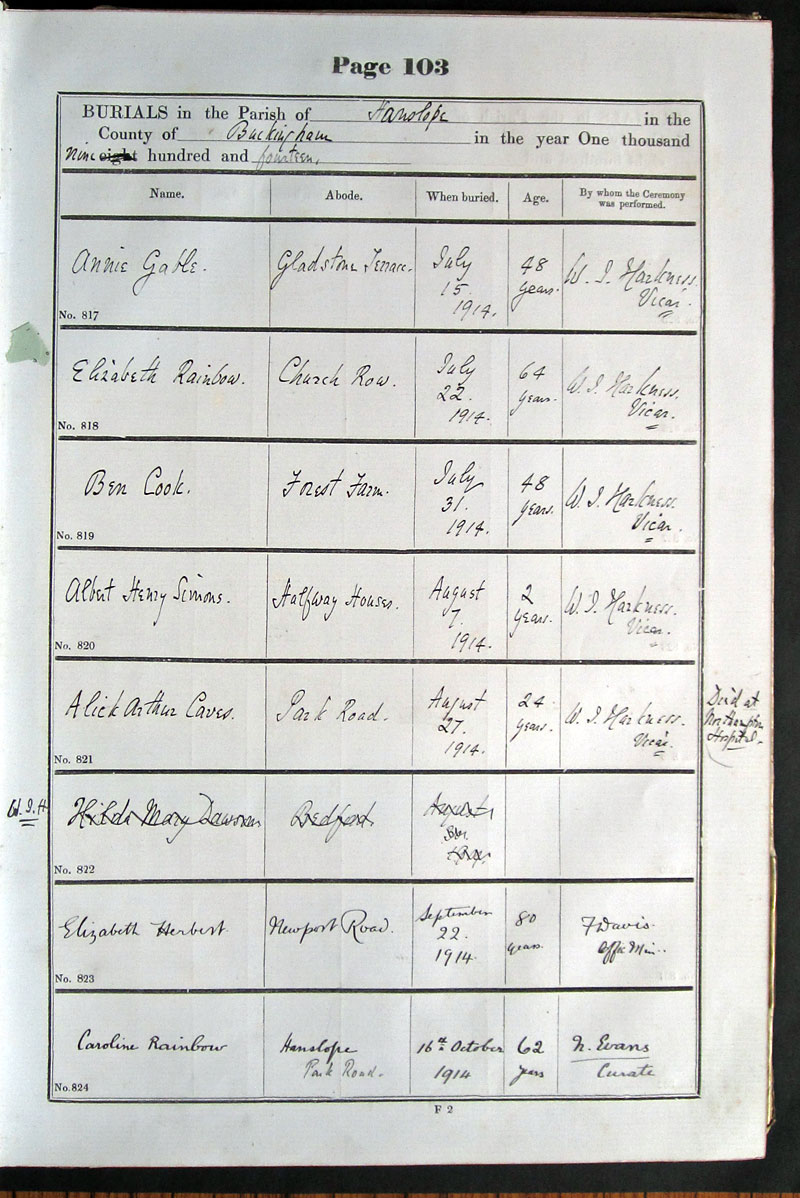 Page 103
BURIALS in the Parish of Hanslope in the
County of Buckingham in the year One thousand
Nine eight hundred and fourteen.
Name. Abode. When buried. Age. By whom the Ceremony was performed.
Annie Gable. Gladstone Terrace. July 15. 1914. 48 years. W. J. Harkness. Vicar.
No. 817
Elizabeth Rainbow. Church Row. July 22. 1914. 64 years. W. J. Harkness. Vicar.
No. 818
Ben Cook. Forest Farm. July 31. 1914. 48 years. W. J. Harkness. Vicar.
No. 819
Albert Henry Simons. Halfway Houses. August 7. 1914. 2 years. W. J. Harkness. Vicar.
No. 820
Alick Arthur Caves. Park Road. August 27. 1914. 24 years. W. J. Harkness. Vicar.
Died at Northampton Hospital.
No. 821
W. J. H. Hilda Mary Dawson Bedford. August
No. 822
Elizabeth Herbert. Newport Road. September 22. 1914. 80 years. F Davis. Offg Min.
No. 823
Caroline Rainbow Hanslope Park Road. 16th October 1914 62 years N. Evans Curate
No. 824
F 2